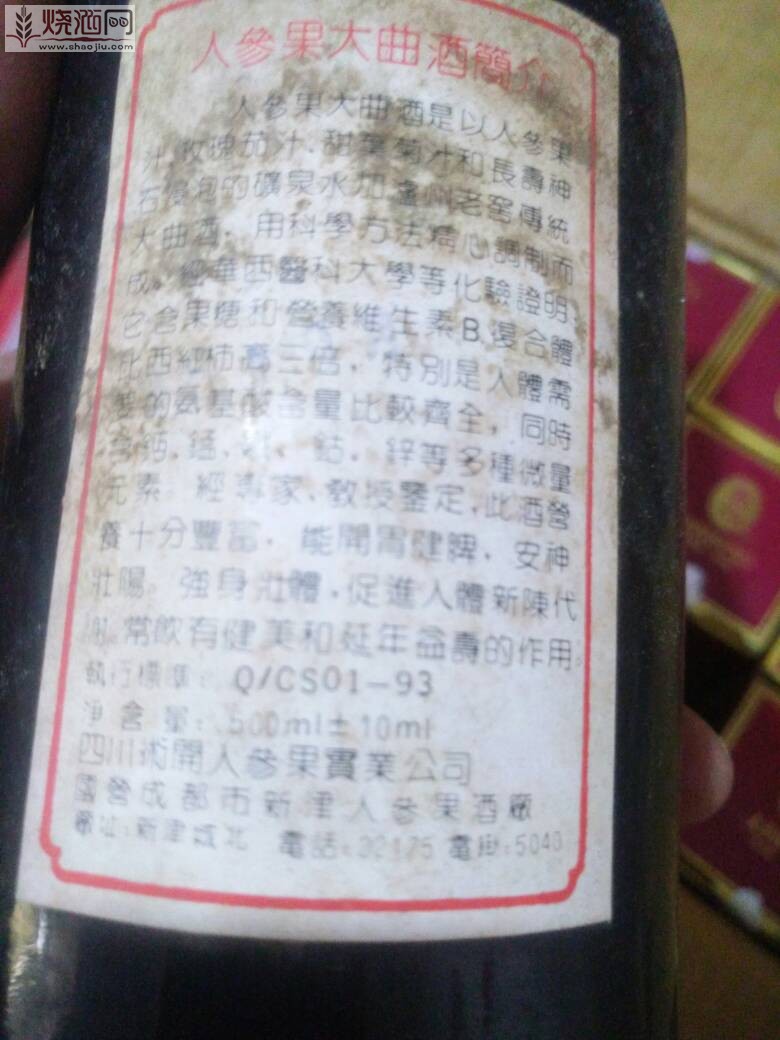 烧酒网
www.shaojiu.com
人參果大曲酒簡介
人參果大曲酒是以人參果
汁、玫瑰茄汁、甜葉菊汁和長壽神
石浸泡的礦泉水加瀘州老窖傳統
大曲酒，用科學方法精心調制而
成。經華西醫科大學等化驗證明，
它含果糖和營養維生素B復合體
比西紅柿高三倍，特別是人體需
要的氨基酸含量比較齊全，同時
含鈣、錳、鈷、鋅等多種微量
元素。經專家、教授鑒定，此酒營
養十分豐富，能開胃健脾，安神
壯陽，強身壯體，促進人體新陳代
謝，常飲有健美和延年益壽的作用。
執行標準：Q/CS01-93
净含量：500ml±10ml
四川術開人參果實業公司
國營成都市新津人參果酒廠
廠址：新津城北 電話：32175 電掛：5040